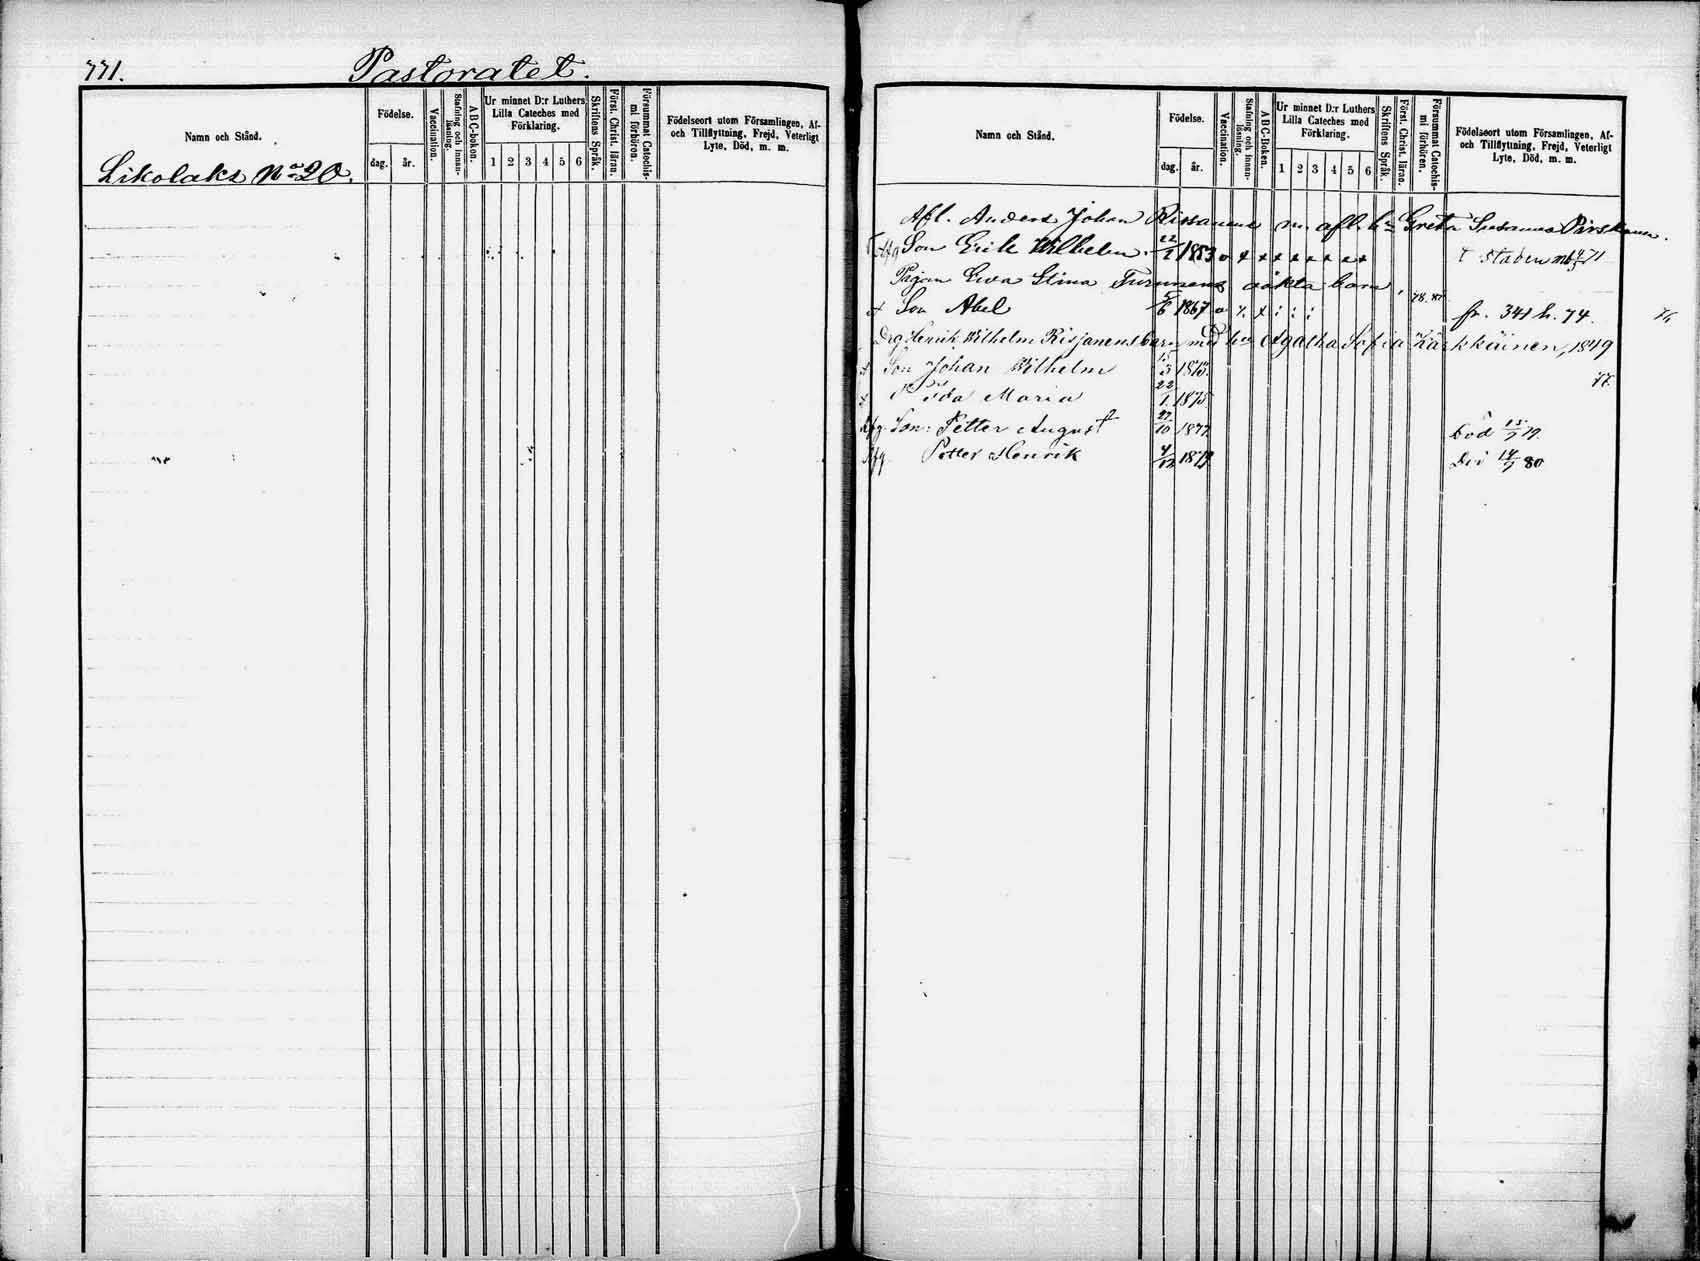 771.
Pastoratet.
Namn och Stånd.
Födelse.
dag. år.
Vaccination.
Stafning och innanläsning.
ABC-boken.
Ur minnet D:r Luthers Lilla Cateches med Förklaring.
1 2 3 4 5 6
Skriftens Språk.
Först. Christ. läran.
Försummat Catechismi förhören.
Födelseort utom Församlingen, Af- och Tillflyttning, Frejd, Veterligt Lyte, Död, m. m.
Likolaks No 20.
Namn och Stånd.
Födelse.
dag. år.
Vaccination.
Stafning och innanläsning.
ABC-Boken.
Ur minnet D:r Luthers Lilla Cateches med Förklaring.
1 2 3 4 5 6
Skriftens Språk.
Först. Christ. läran.
Försummat Catechismi förhören.
Födelseort utom Församlingen, Af- och Tillflyttning, Frejd, Veterligt Lyte, Död, m. m.
Afl. Anders Johan Rissanens m. afl. h:u Greta Susanna
Afg Son Erik Wilhelm 1853 o x x x x x x x t staden 71
Ewa Stina Turunens oäkta barn, 78. 87
x Son Abel 5/6 1867 o x : : : fr. 341 h. 74.
Drg Henrik Wilhelm Risjanens barn med hu Agatha Sofia Kärkkäinen, 1849
x Son Johan Wilhelm 15/3 1873. 77.
x Ida Maria 22/1 1875
Afg. Son: Petter August † 27/10 1877 död 15/7 79.
Afg Petter Henrik 4/12 1879 Död 14/7 80